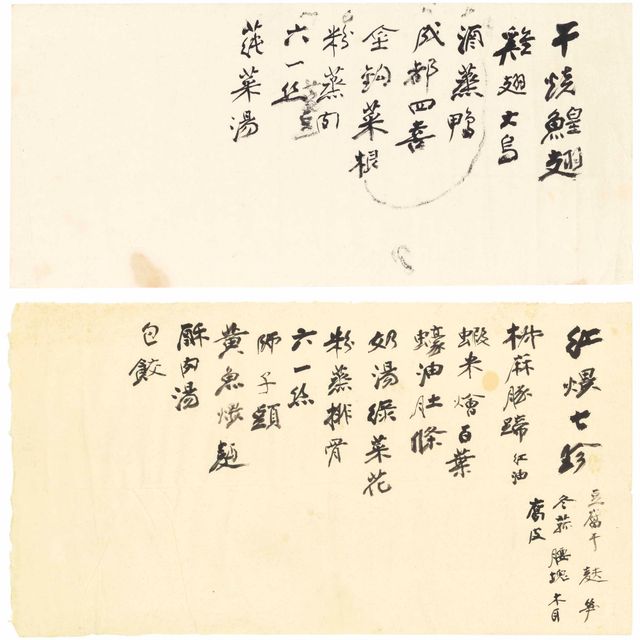 干燒鰉翅
雞翅大烏
酒蒸鴨
成都四喜
金鉤菜根
粉蒸肉
六一絲
蒓菜湯
紅煨七珍
豆腐干 麩 筍
冬菰 腰 木耳
腐皮
椒麻豚蹄 紅油
蝦米燴百葉
蠔油肚條
奶湯綠菜花
粉蒸排骨
六一絲
師子頭
黃魚麵
酥肉湯
包餃